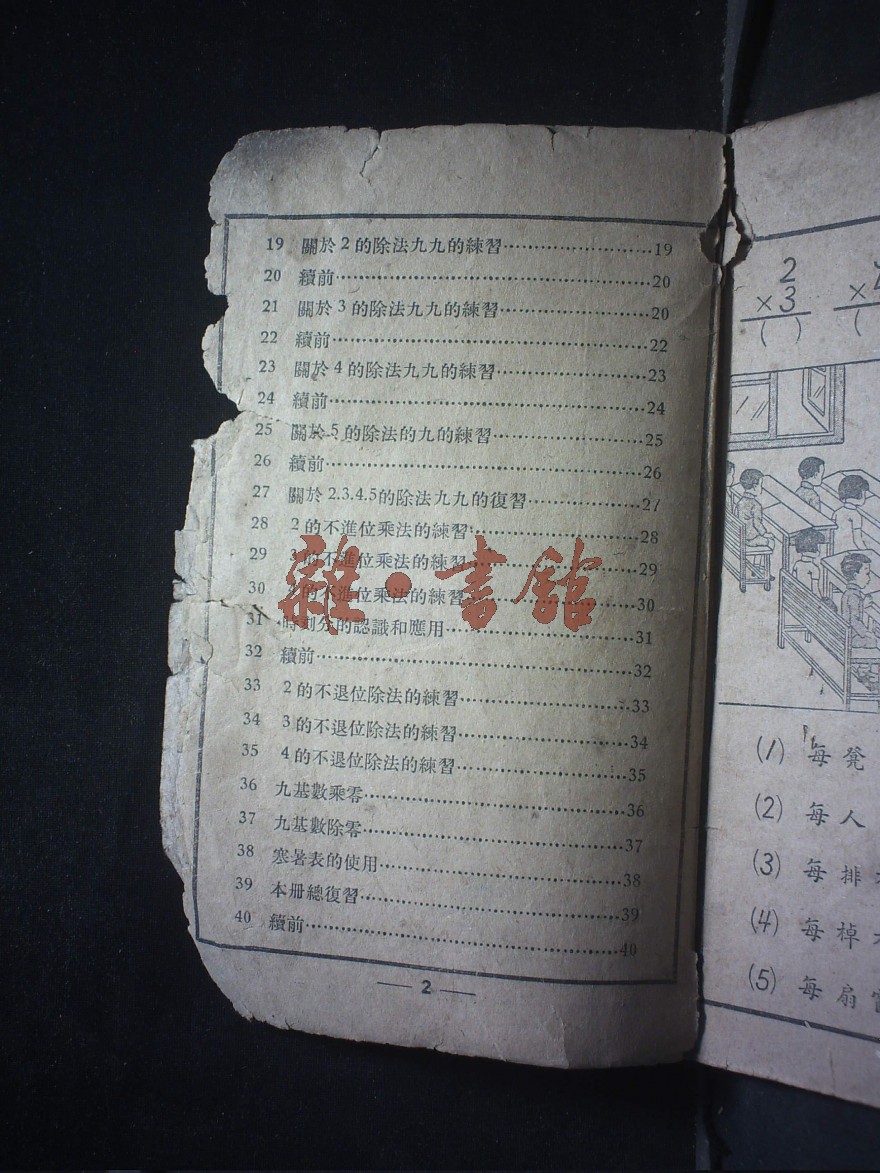 19 關於2的除法九九的練習…………………19
20 續前…………………20
21 關於3的除法九九的練習…………………20
22 續前…………………22
23 關於4的除法九九的練習…………………23
24 續前…………………24
25 關於5的除法的九的練習…………………25
26 續前…………………26
27 關於2.3.4.5的除法九九的復習…………………27
28 2的不進位乘法的練習…………………28
29 3的不進位乘法的練習…………………29
30 的不進位乘法的練習…………………30
31 時刻分的認識和應用…………………31
32 續前…………………32
33 2的不退位除法的練習…………………33
34 3的不退位除法的練習…………………34
35 4的不退位除法的練習…………………35
36 九基數乘零…………………36
37 九基數除零…………………37
38 寒暑表的使用…………………38
39 本册總復習…………………39
40 續前…………………40
— 2 —
雜·書館
2
×3
( )
×
(
(1) 每凳
(2) 每人
(3) 每排
(4) 每棹
(5) 每扇